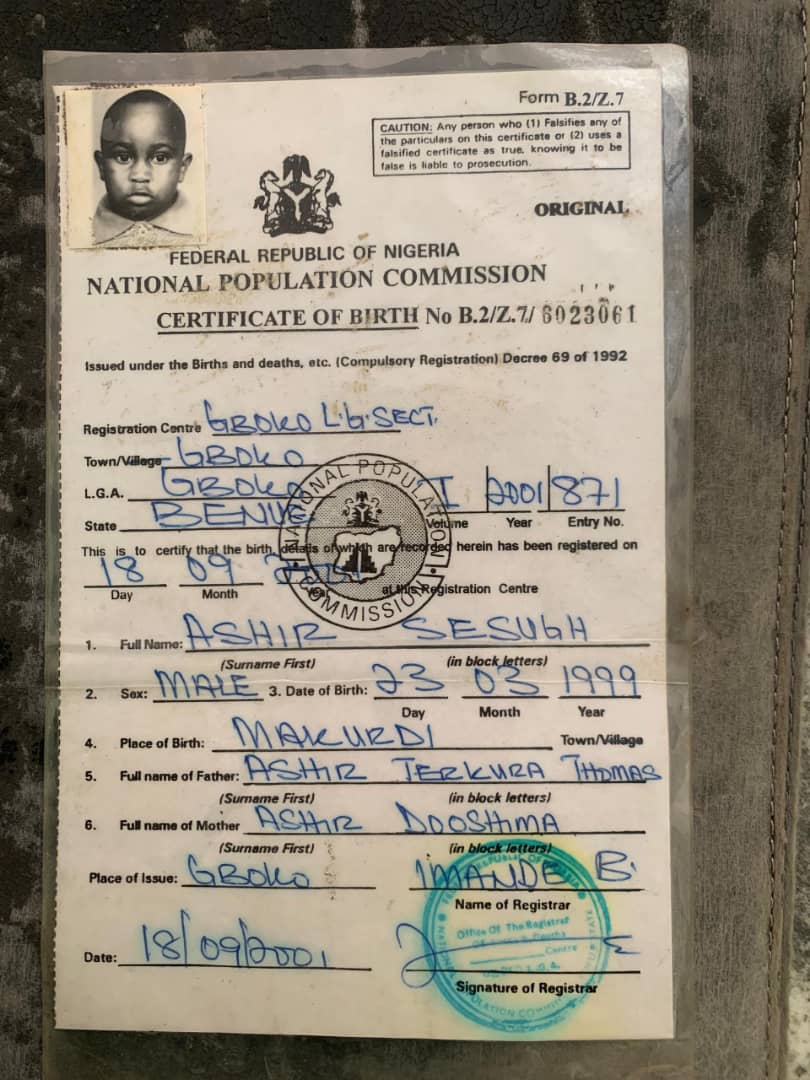 Form B.2/Z.7
CAUTION: Any person who (1) Falsifies any of
the particulars on this certificate or (2) uses a
falsified certificate as true, knowing it to be
false is liable to prosecution.
ORIGINAL
FEDERAL REPUBLIC OF NIGERIA
NATIONAL POPULATION COMMISSION
CERTIFICATE OF BIRTH No B.2/Z.7/ 6023061
Issued under the Births and deaths, etc. (Compulsory Registration) Decree 69 of 1992
Registration Centre GBOKO L.G. SECT.
Town/Village GBOKO
L.G.A. GBOKO I 2001 871
State BENUE Volume Year Entry No.
NATIONAL POPULATION COMMISSION
This is to certify that the birth, details of which are recorded herein has been registered on
18 09 2001 at this Registration Centre
Day Month Year
1. Full Name: ASHIR SESUGH
(Surname First) (in block letters)
2. Sex: MALE 3. Date of Birth: 23 03 1999
Day Month Year
4. Place of Birth: MAKURDI Town/Village
5. Full name of Father: ASHIR TERKURA THOMAS
(Surname First) (in block letters)
6. Full name of Mother ASHIR DOOSHIMA
(Surname First) (in block letters)
Place of Issue: GBOKO IMANDE B.
Name of Registrar
Office Of The Registrar
Centre
L.G.A.
Date: 18/09/2001
Signature of Registrar